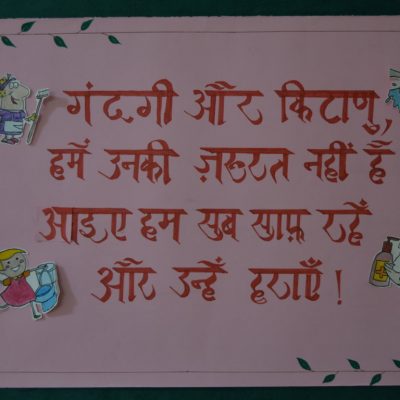 गंदगी और किटाणु,
हमें उनकी ज़रूरत नहीं है
आइए हम सब साफ़ रहें
और उन्हें हराएँ !